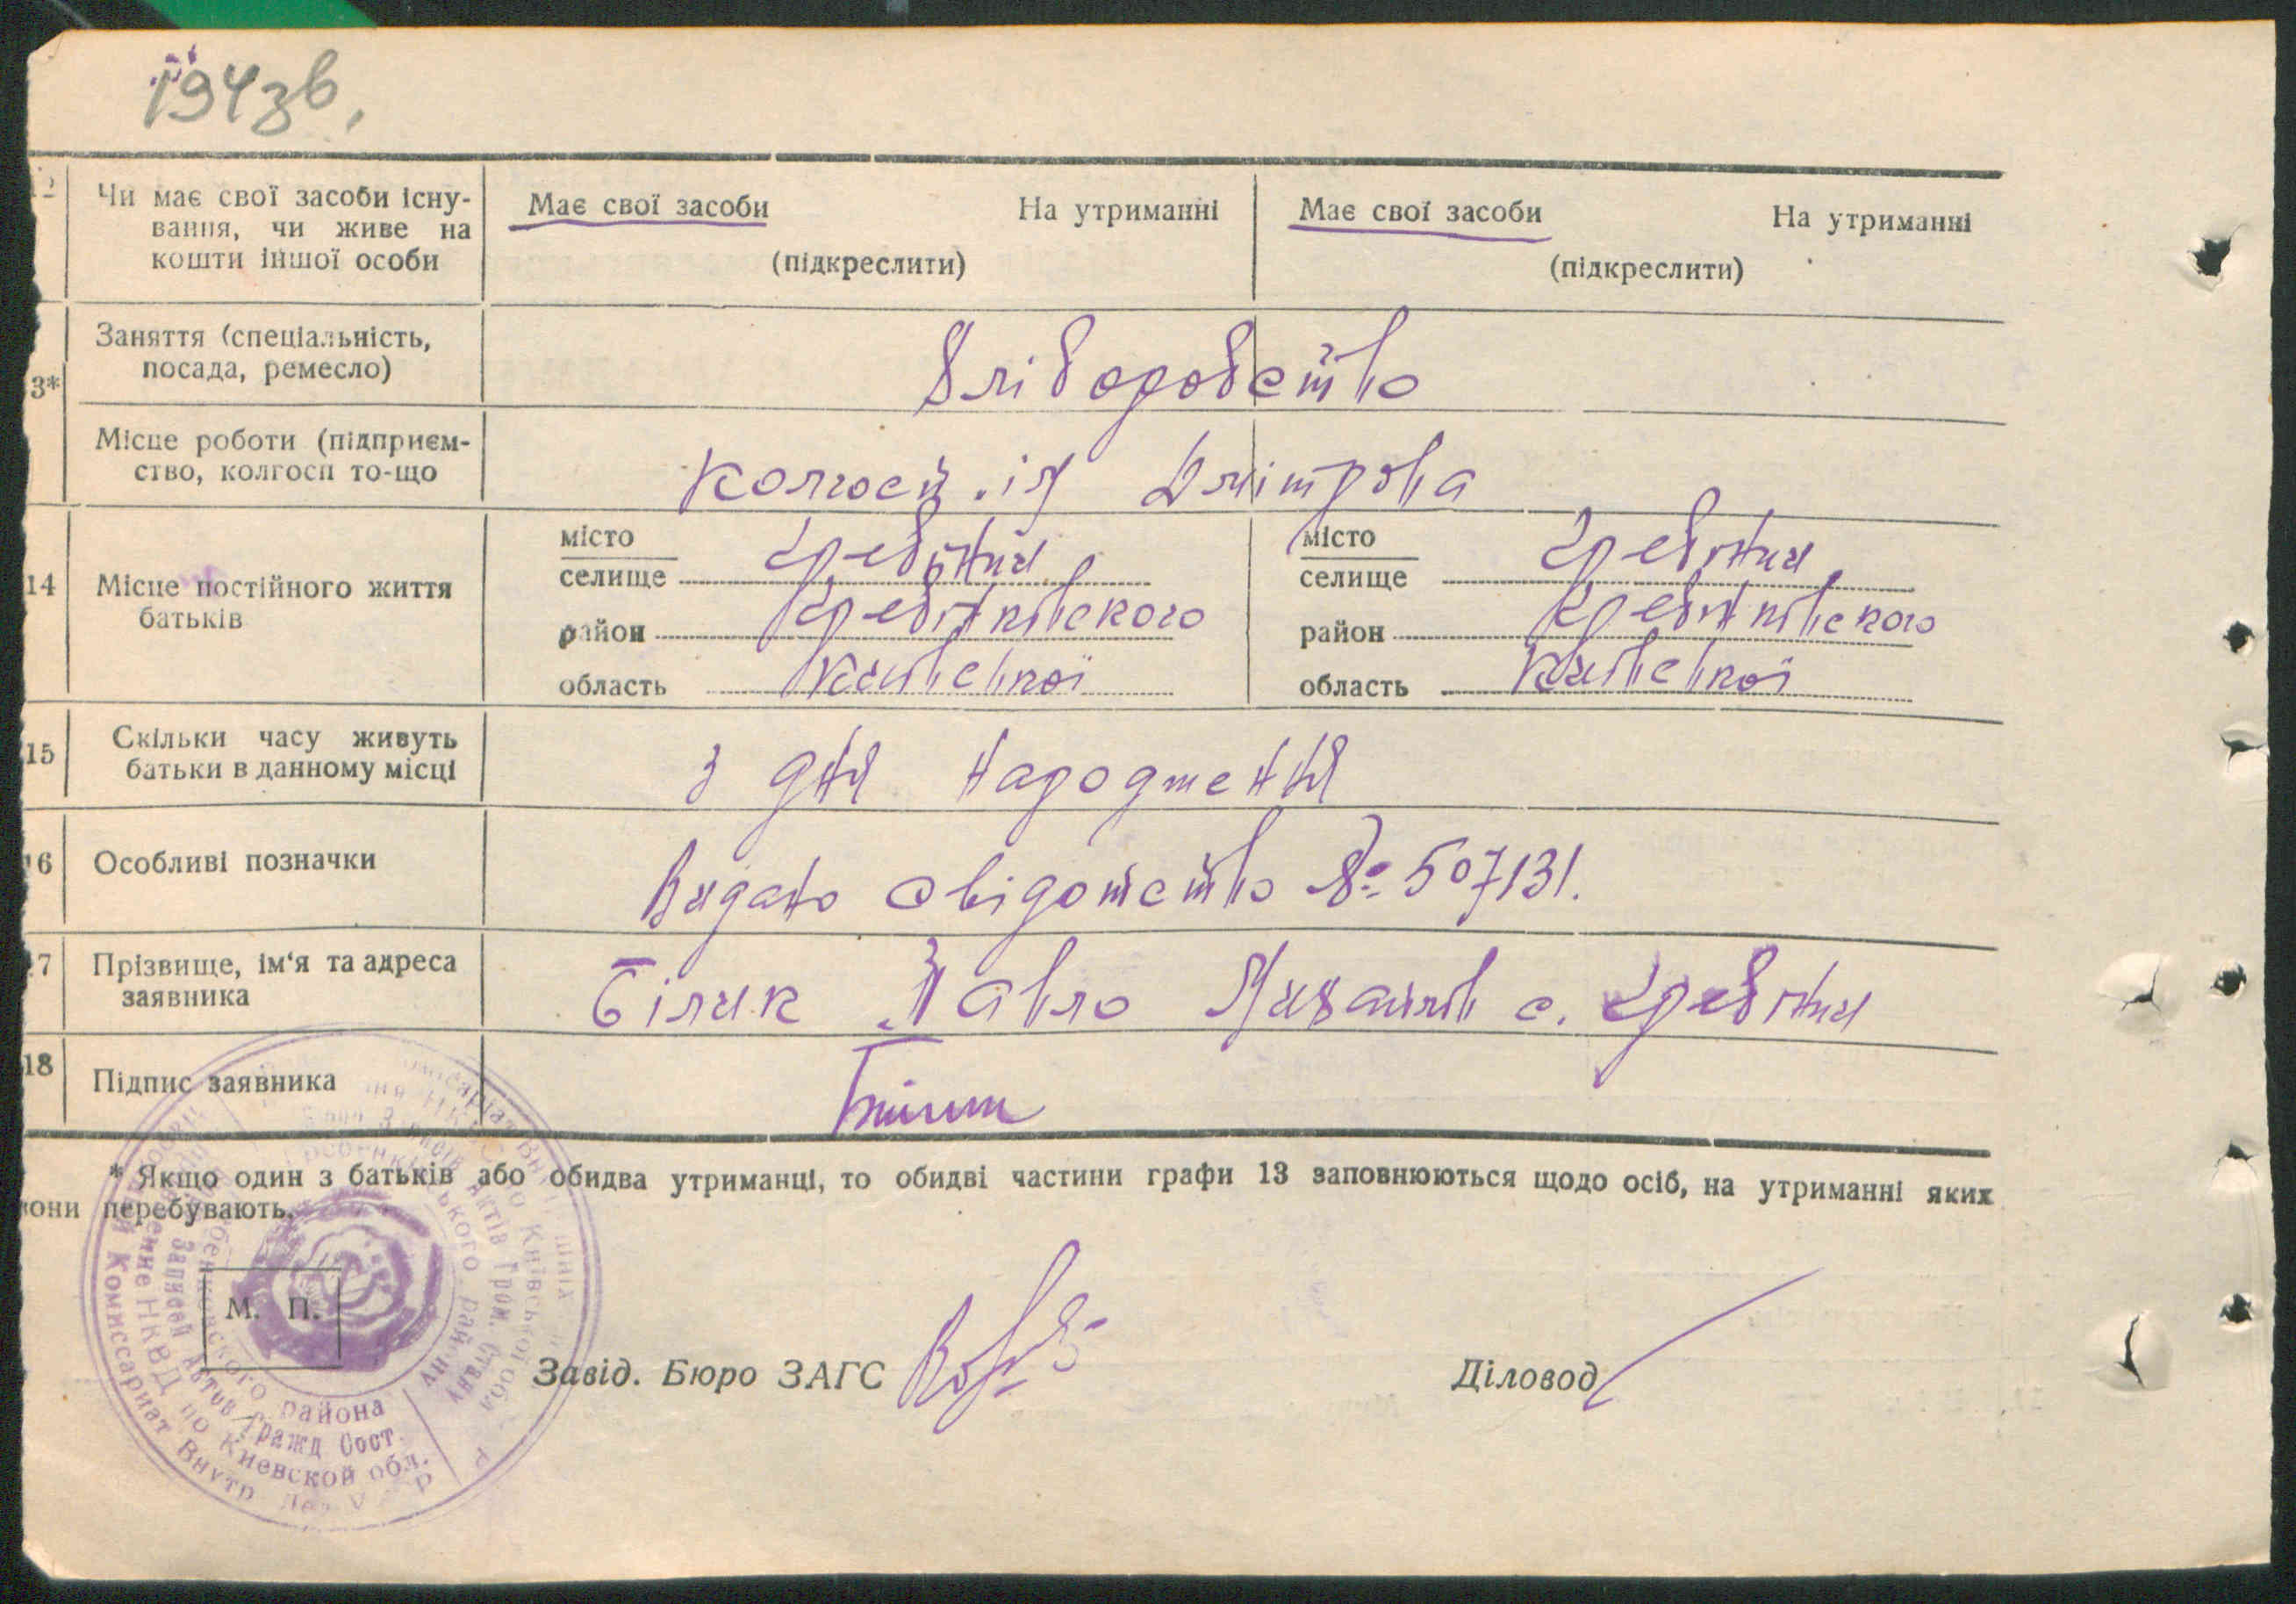 1943в.
12 Чи має свої засоби існу-
вання, чи живе на
кошти іншої особи
Має свої засоби На утриманні
(підкреслити)
Має свої засоби На утриманні
(підкреслити)
13* Заняття (спеціальність,
посада, ремесло)
Хліборобство
Місце роботи (підприєм-
ство, колгосп то-що
колгосп .ім Дмітрова
14 Місце постійного життя
батьків
місто
селище Гребінки
район Гребінківского
область Київської
місто
селище Гребінки
район Гребінківского
область Київської
15 Скільки часу живуть
батьки в данному місці
з дня народження
16 Особливі позначки
Видано свідотство № 507131.
17 Прізвище, ім‘я та адреса
заявника
Білик Павло Михайлів с. Гребінки
18 Підпис заявника
* Якщо один з батьків або обидва утриманці, то обидві частини графи 13 заповнюються щодо осіб, на утриманні яких
вони перебувають.
М. П.
Завід. Бюро ЗАГС
Діловод
Комиссариат Внутр
НКВД по Киевской обл.
Записей Актов Гражд Сост.
района